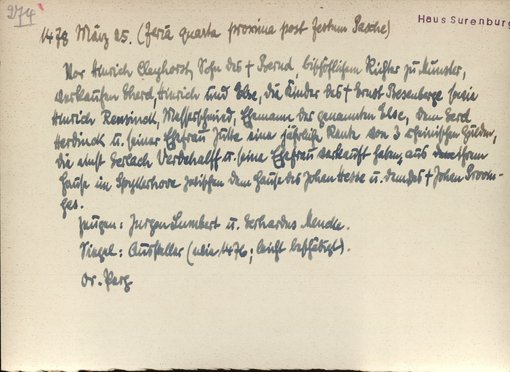 274
Haus Surenburg
1478 März 25. (feria quarta proxima post festum Pasche)
Vor Hinrich Cleyhorst, Sohn des † Bernd, bischöflichem Richter zu Münster,
verkaufen Eberd, Hinrich und Else, die Kinder des † Ernst Besenberge sowie
Hinrich Rensinck, Messerschmied, Ehemann der genannten Else, dem Gerd
Herdinck u. seiner Ehefrau Jutte eine jährliche Rente von 3 rheinischen Gulden,
die einst Gerlach Verdehalff u. seine Ehefrau verkauft haben, aus dessen
Hause im Spyllerhove zwischen dem Hause des Johan Hesse u. dem des † Johan
ges.
Zeugen: Jurgen Lumbert u. Gerhardes Mencke.
Siegel: Aussteller (wie 1476; leicht beschädigt).
Or. Perg